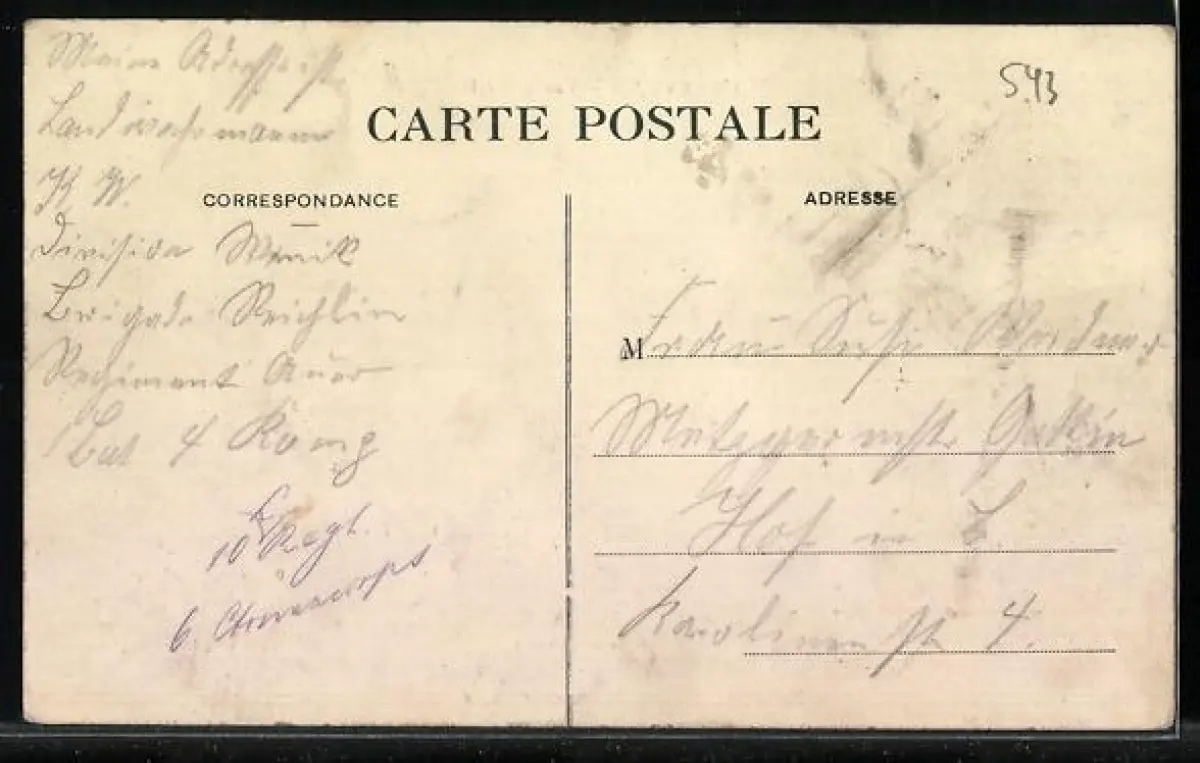 543
CARTE POSTALE
CORRESPONDANCE
ADRESSE
Meine Adresse ist
Landwehrmann
K W.
Division
Brigade Reichlin
Regiment Auer
Bat 4 Komp
10 Regt.
6. Armeecorps
M Frau
Metzgermstr Gattin
Hof in B.
Karolinenstr 4.